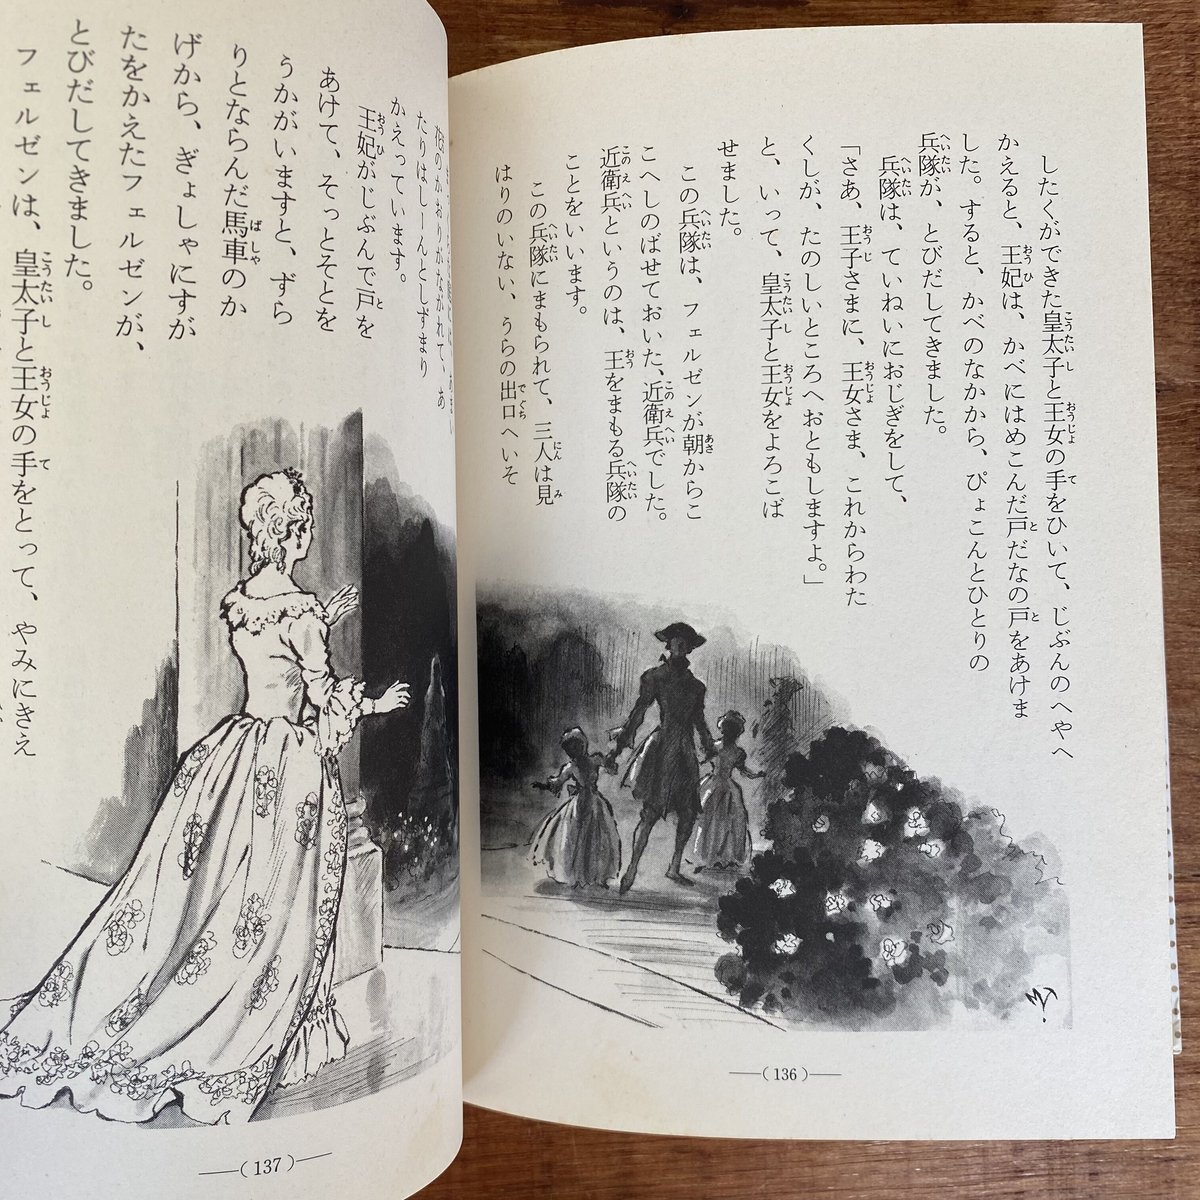 したくができた皇太子と王女の手をひいて、じぶんのへやへ
かえると、王妃は、かべにはめこんだ戸だなの戸をあけま
した。すると、かべのなかから、ぴょこんとひとりの
兵隊が、とびだしてきました。
兵隊は、ていねいにおじぎをして、
「さあ、王子さまに、王女さま、これからわた
くしが、たのしいところへおともしますよ。」
と、いって、皇太子と王女をよろこば
せました。
この兵隊は、フェルゼンが朝からこ
こへしのばせておいた、近衛兵でした。
近衛兵というのは、王をまもる兵隊の
ことをいいます。
この兵隊にまもられて、三人は見
はりのいない、うらの出口へいそ
(136)
花のかおりがながれて、あ
たりはしーんとしずまり
かえっています。
王妃がじぶんで戸を
あけて、そっとそとを
うかがいますと、ずら
りとならんだ馬車のか
げから、ぎょしゃにすが
たをかえたフェルゼンが、
とびだしてきました。
フェルゼンは、皇太子と王女の手をとって、やみにきえ
(137)